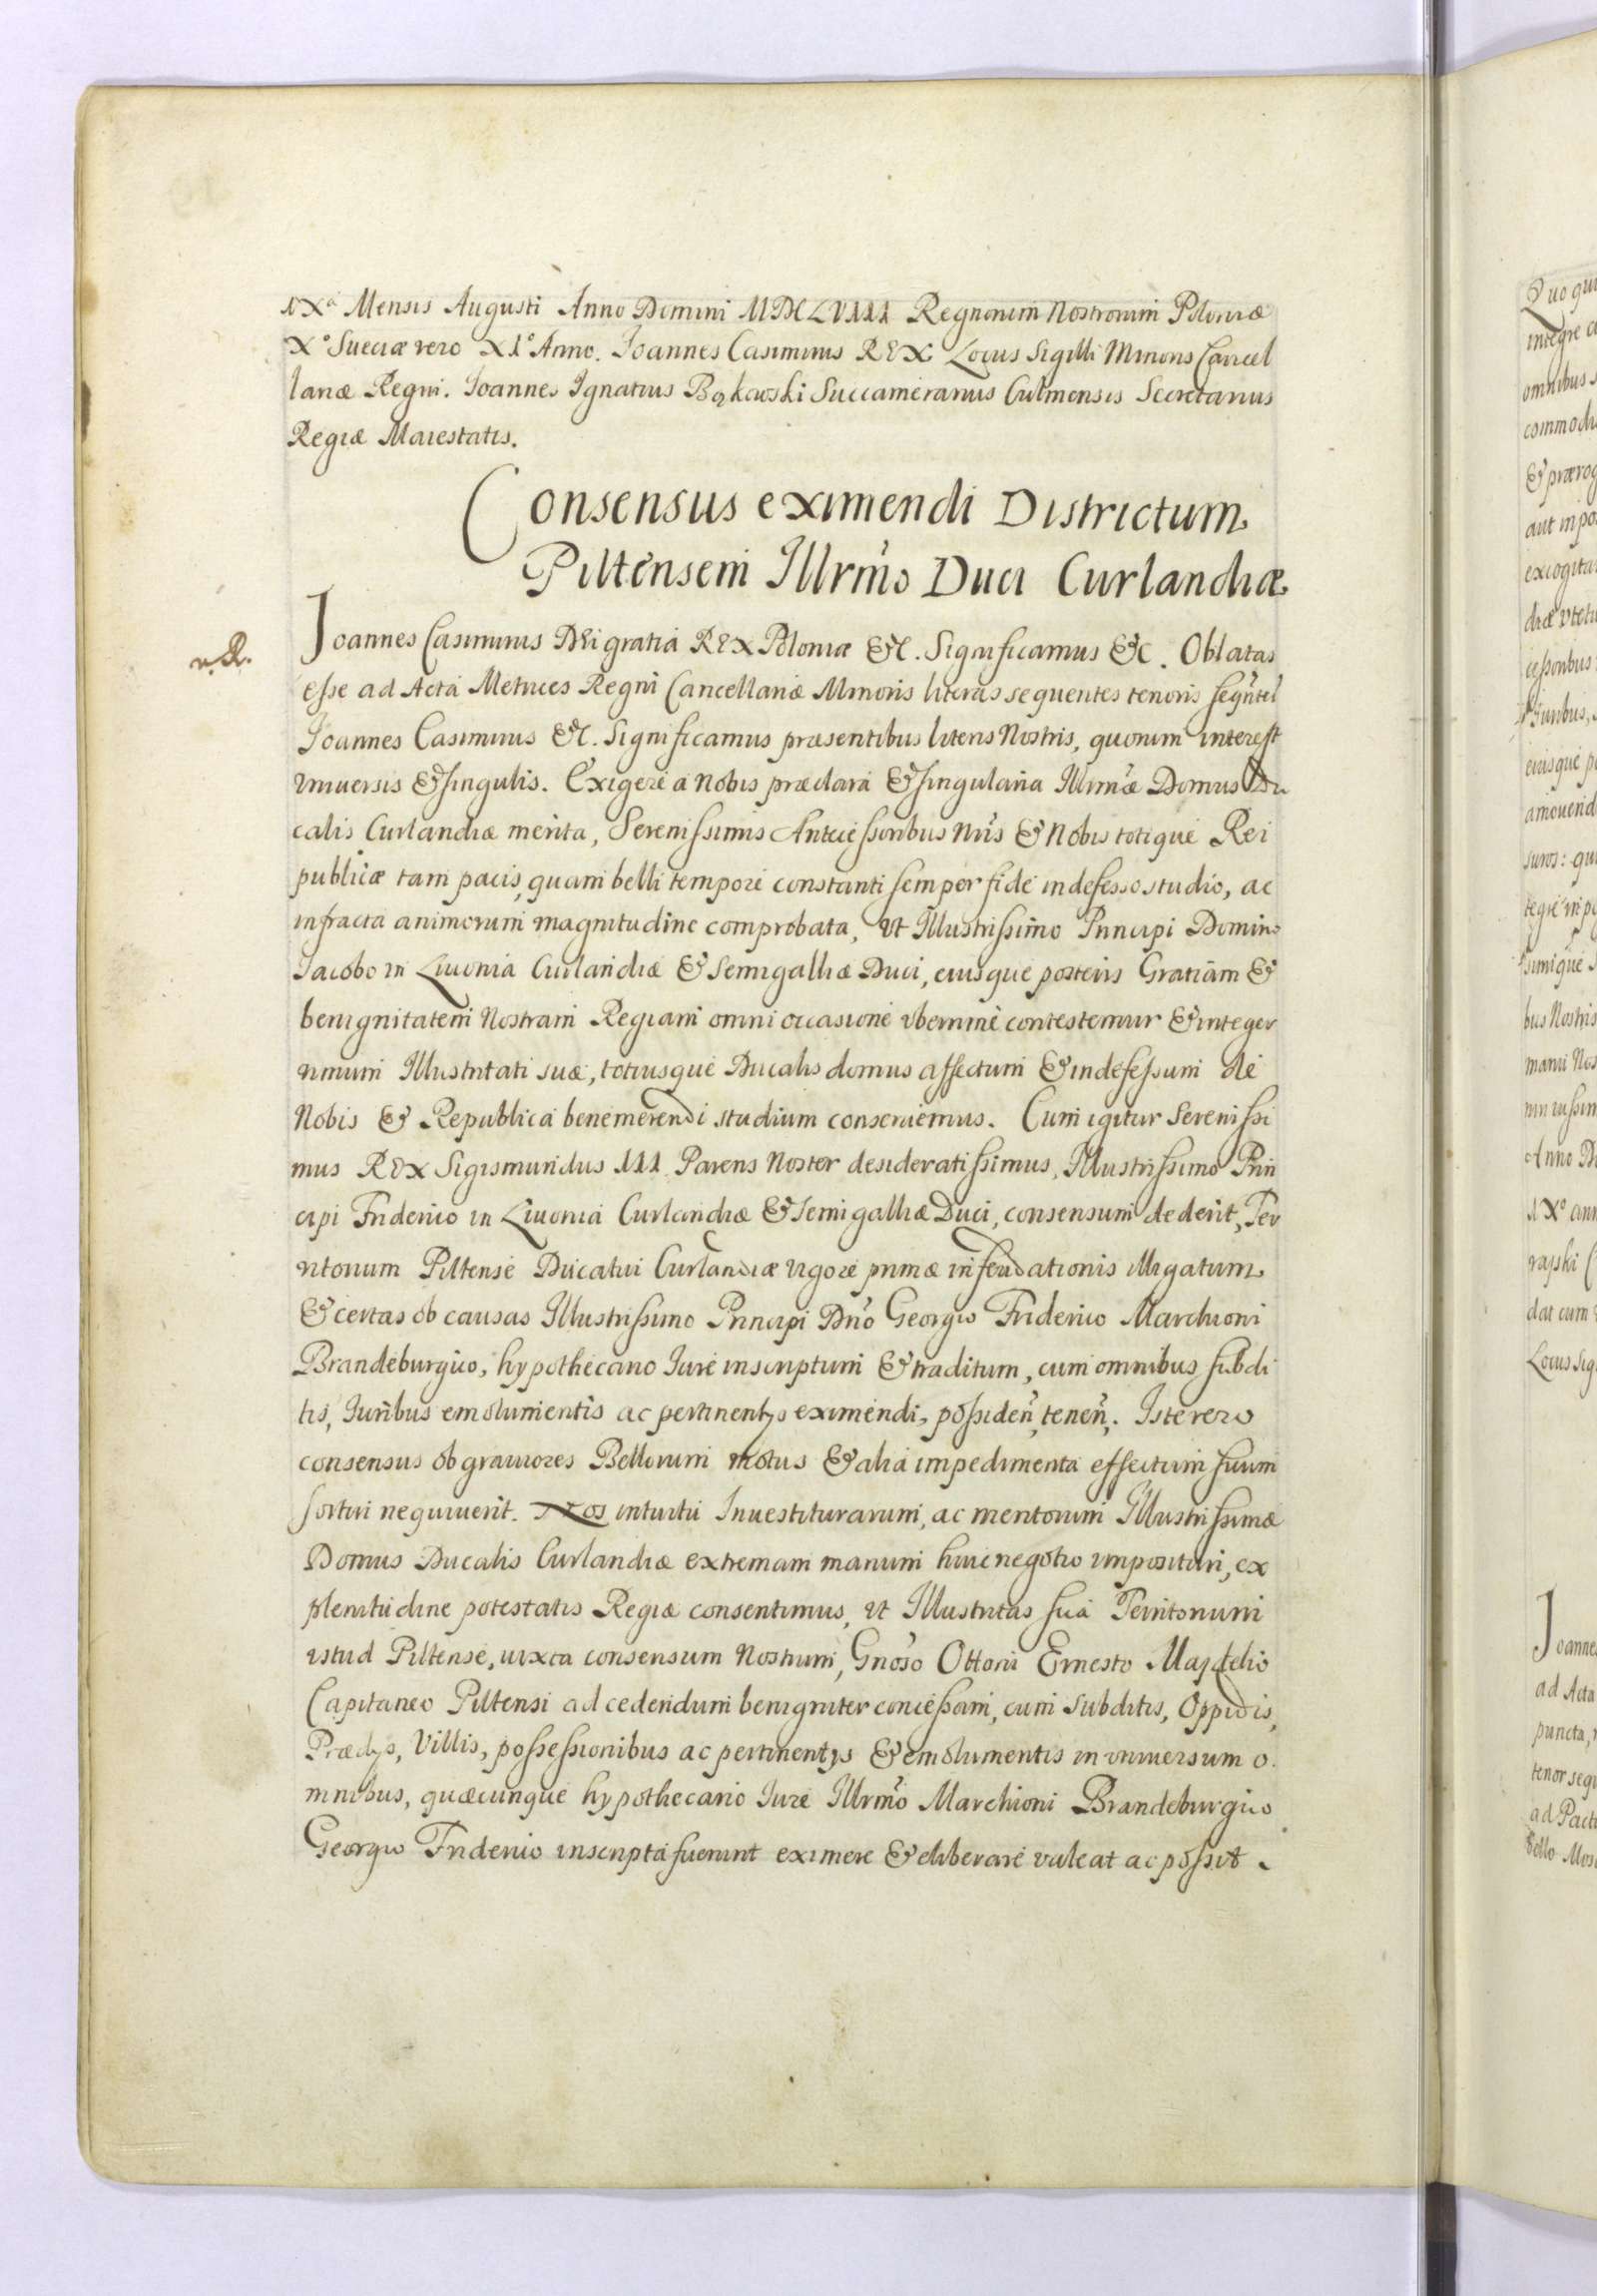 IXa Mensis Augusti Anno Domini MDCLVIII Regnorum Nostrorum Poloniæ
X° Sueciæ vero XI° Anno. Ioannes Casimirus REX Locus Sigilli Minoris Cancel
lariæ Regni. Ioannes Ignatius Bąkowski Succamerarius Culmensis Secretarius
Regiæ Maiestatis.
Consensus eximendi Districtum
Piltensem Illrmo Duci Curlandiæ
Ioannes Casimirus DEi gratia REX Poloniæ &c. Significamus &c. Oblatas
esse ad Acta Metrices Regni Cancellariæ Minoris literas sequentes tenoris seqntis
Ioannes Casimirus &c. Significamus præsentibus literis Nostris, quorum interest
vniuersis & singulis. Exigere a Nobis præclara & singularia Illrmæ Domus Du
calis Curlandiæ merita, Serenissimis Antecessoribus Nris & Nobis totique Rei
publicæ tam pacis, quam belli tempore constanti semper fide indefesso studio, ac
infracta animorum magnitudine comprobata, vt Illustrissimo Principi Domino
Iacobo in Liuonia Curlandiæ & Semigalliæ Duci, eiusque posteris Gratiam &
benignitatem Nostram Regiam omni occasione vberrime contestemur & integer
rimum Illustritati suæ, totiusque Ducalis domus affectum & indefessum de
Nobis & Republica benemerendi studium conseruemus. Cum igitur Serenissi
mus REX Sigismundus III Parens Noster desideratissimus, Illustrissimo Prin
cipi Friderico in Liuonia Curlandiæ & Semigalliæ Duci, consensum dederit, Ter
ritorium Piltense Ducatui Curlandiæ vigore primæ infeudationis illigatum
& certas ob causas Illustrissimo Principi Dno Georgio Friderico Marchioni
Brandeburgico, hypothecario Iure inscriptum & traditum, cum omnibus subdi
tis, Iuribus emolumentis ac pertinentijs eximendi, possiden, tenen. Iste vero
consensus ob grauiores Bellorum motus & alia impedimenta effectum suum
sortiri nequiuerit. Nos intuitu Inuestiturarum, ac meritorum Illustrissimæ
Domus Ducalis Curlandiæ extremam manum huic negotio imposituri, ex
plenitudine potestatis Regiæ consentimus, vt Illustritas sua Territorium
istud Piltense, iuxta consensum Nostrum, Gnoso Ottoni Ernesto Majdelio
Capitaneo Piltensi ad cedendum benigniter concessam, cum Subditis, Oppidis,
Prædijs, Villis, possessionibus ac pertinentijs & emolumentis in vniuersum o
mnibus, quæcunque hypothecario Iure Illrmo Marchioni Brandeburgico
Georgio Friderico inscripta fuerint eximere & eliberare valeat ac possit